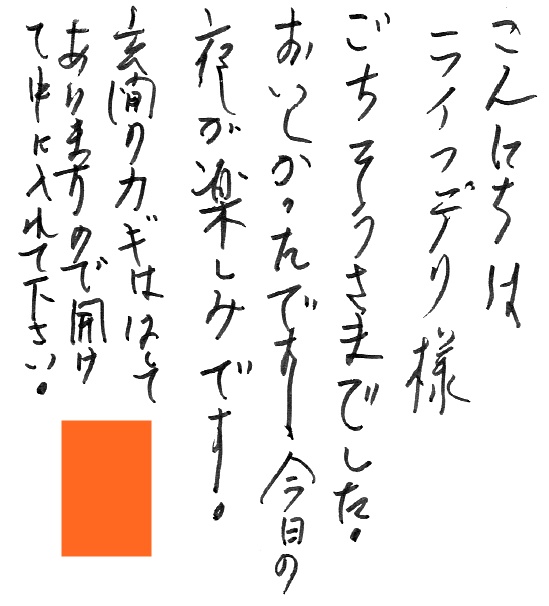 こんにちは
ライフデリ様
ごちそうさまでした。
おいしかったです! 今日の
夜が楽しみです。
玄関のカギははずして
ありますので開け
て中に入れて下さい。